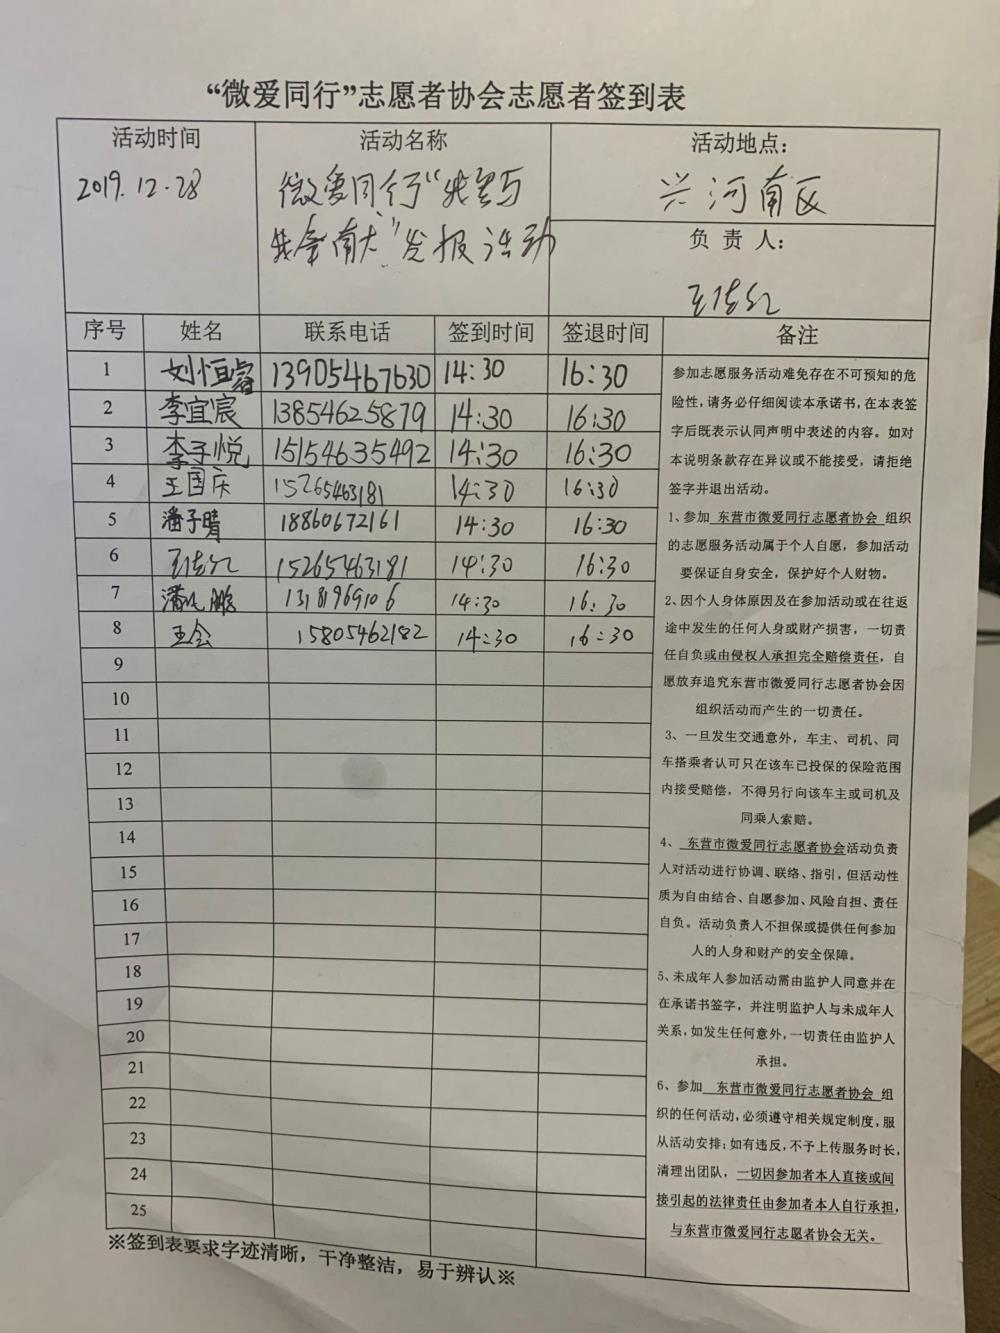 “微爱同行”志愿者协会志愿者签到表
活动时间
2019.12.28
活动名称
微爱同行“我参与
”发报活动
活动地点：
兴河南区
负 责 人：
序号 姓名 联系电话 签到时间 签退时间 备注
1 刘恒睿 13905467630 14:30 16:30
2 李宜宸 13854625879 14:30 16:30
3 李子悦 15154635492 14:30 16:30
4 王国庆 15265463181 14:30 16:30
5 潘子晴 18860672161 14:30 16:30
6 15265463181 14:30 16:30
7 13181969106 14:30 16:30
8 王会 15805462182 14:30 16:30
9
10
11
12
13
14
15
16
17
18
19
20
21
22
23
24
25
参加志愿服务活动难免存在不可预知的危
险性，请务必仔细阅读本承诺书，在本表签
字后既表示认同声明中表述的内容。如对
本说明条款存在异议或不能接受，请拒绝
签字并退出活动。
1、参加 东营市微爱同行志愿者协会 组织
的志愿服务活动属于个人自愿，参加活动
要保证自身安全，保护好个人财物。
2、因个人身体原因及在参加活动或在往返
途中发生的任何人身或财产损害，一切责
任自负或由侵权人承担完全赔偿责任，自
愿放弃追究东营市微爱同行志愿者协会因
组织活动而产生的一切责任。
3、一旦发生交通意外，车主、司机、同
车搭乘者认可只在该车已投保的保险范围
内接受赔偿，不得另行向该车主或司机及
同乘人索赔。
4、 东营市微爱同行志愿者协会活动负责
人对活动进行协调、联络、指引，但活动性
质为自由结合、自愿参加、风险自担、责任
自负。活动负责人不担保或提供任何参加
人的人身和财产的安全保障。
5、未成年人参加活动需由监护人同意并在
在承诺书签字，并注明监护人与未成年人
关系，如发生任何意外，一切责任由监护人
承担。
6、参加 东营市微爱同行志愿者协会 组
织的任何活动，必须遵守相关规定制度，服
从活动安排；如有违反，不予上传服务时长，
清理出团队，一切因参加者本人直接或间
接引起的法律责任由参加者本人自行承担，
与东营市微爱同行志愿者协会无关。
※签到表要求字迹清晰，干净整洁，易于辨认※